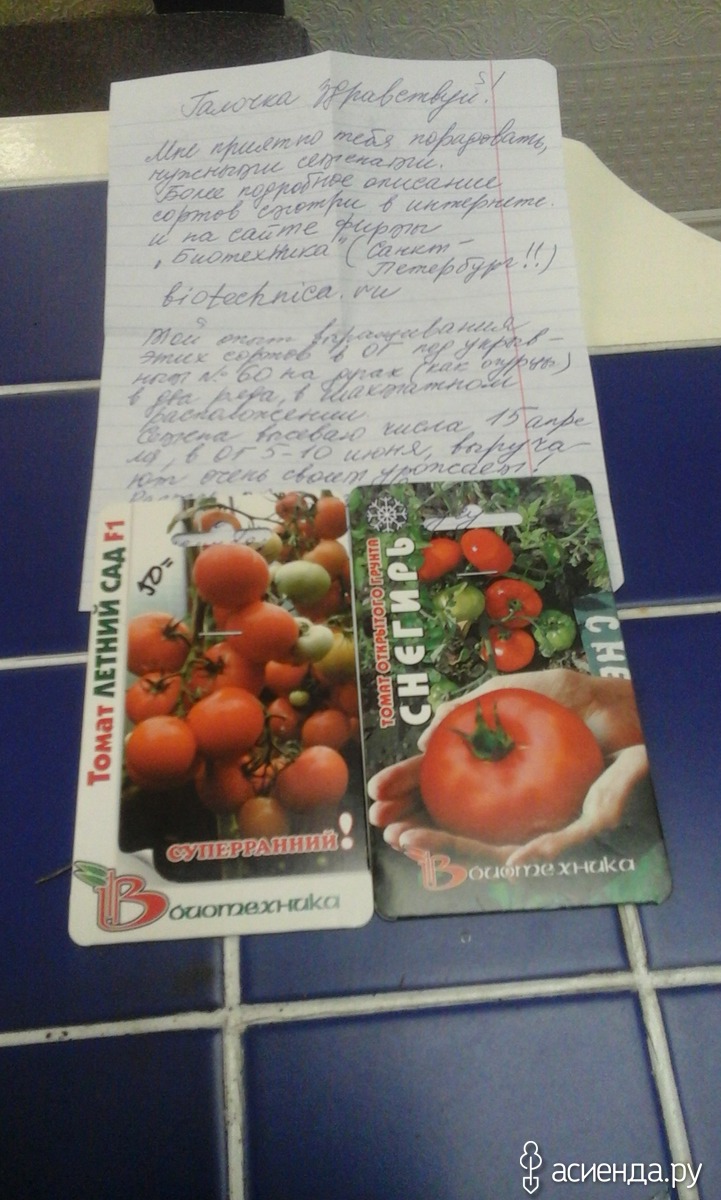 Галочка Здравствуй!
Мне приятно тебя порадовать,
нужными семенами.
Более подробное описание
сортов смотри в интернете.
и на сайте фирмы
„Биотехника" (Санкт-
Петербург!!)
biotechnica.ru
Мой опыт выращивания
этих сортов в ОГ под укрыв-
ным № 60 на дугах (как огурцы)
в два ряда, в шахматном
расположении
Семена высеваю числа 15 апре
ля, в ОГ 5-10 июня, выруча-
ют очень своим урожаем!
Томат ЛЕТНИЙ САД F1
50=
СУПЕРРАННИЙ!
Биотехника
ТОМАТ ОТКРЫТОГО ГРУНТА
СНЕГИРЬ
СНЕ
Биотехника
асиенда.ру